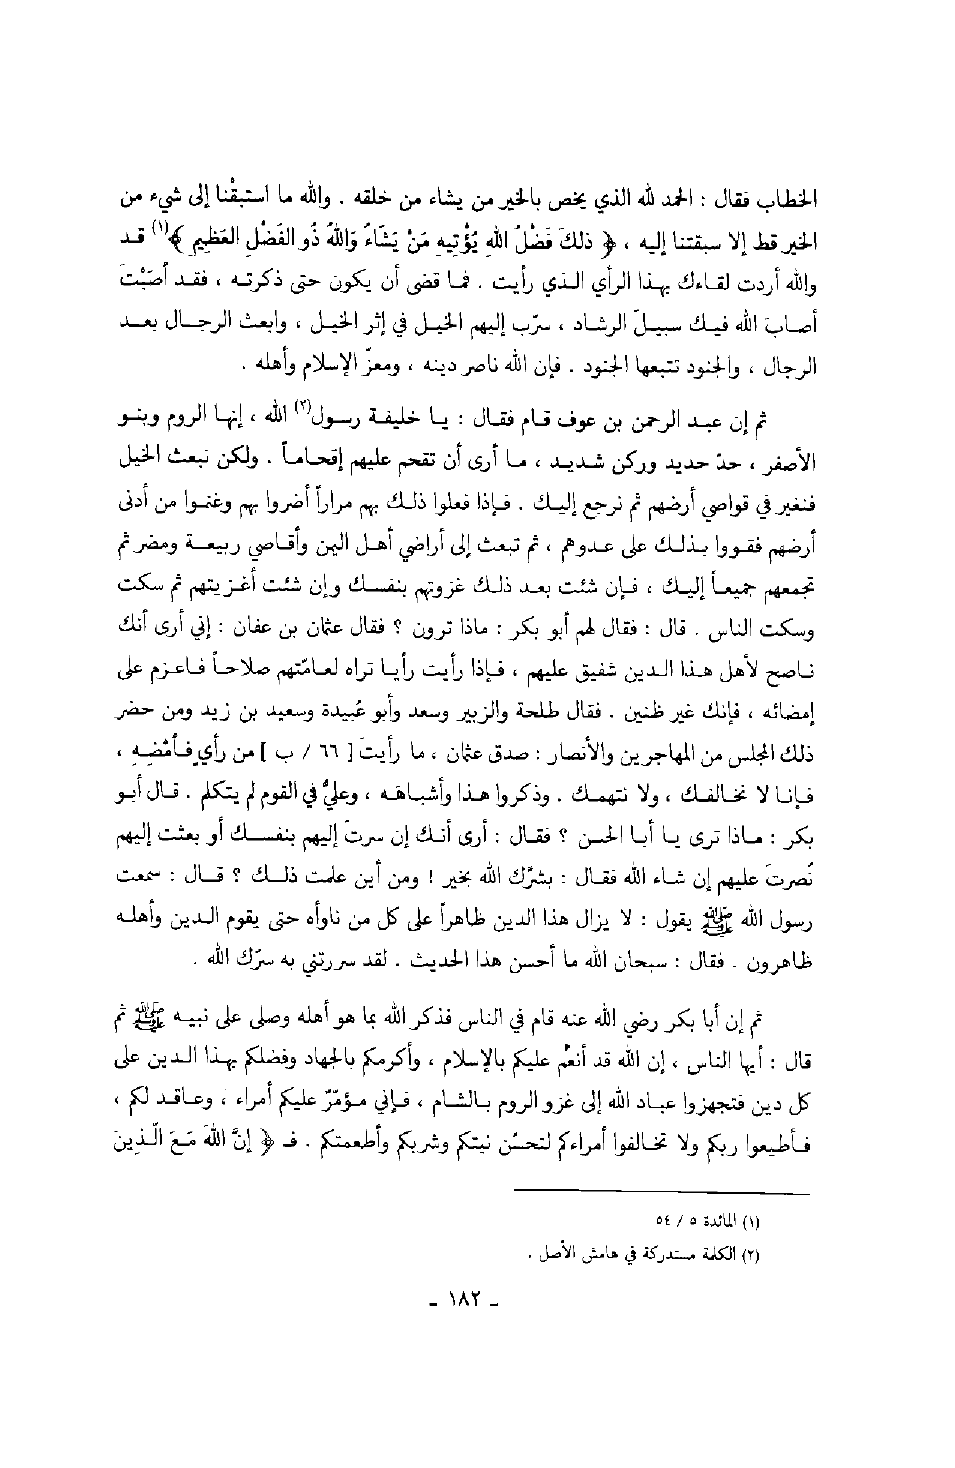 الخطاب فقال : الحمد لله الذي يخص بالخير من يشاء من خلقه . والله ما استبقْنا إلى شيء من
الخير قط إلا سبقتنا إليه ، ﴿ ذلكَ فَضْلُ اللهِ يُؤْتِيهِ مَنْ يَشَاءُ وَاللهُ ذُو الفَضْلِ العَظِيمِ ﴾(١) قد
والله أردت لقاءك بهذا الرأي الذي رأيت . فما قضى أن يكون حتى ذكرته ، فقد أصَبْتَ
أصابَ الله فيك سبيلَ الرشاد ، سرّب إليهم الخيل في إثر الخيل ، وابعث الرجال بعد
الرجال ، والجنود تتبعها الجنود . فإن الله ناصر دينه ، ومعزّ الإسلام وأهله .
ثم إن عبد الرحمن بن عوف قام فقال : يا خليفة رسول(٢) الله ، إنها الروم وبنو
الأصفر ، حدّ حديد وركن شديد ، ما أرى أن تقحم عليهم إقحاماً . ولكن نبعث الخيل
فتغير في قواصي أرضهم ثم ترجع إليك . فإذا فعلوا ذلك بهم مراراً أضروا بهم وغنموا من أدنى
أرضهم فقووا بذلك على عدوهم ، ثم تبعث إلى أراضي أهل اليمن وأقاصي ربيعة ومضر ثم
تجمعهم جميعاً إليك ، فإن شئت بعد ذلك غزوتهم بنفسك وإن شئت أغزيتهم ثم سكت
وسكت الناس . قال : فقال لهم أبو بكر : ماذا ترون ؟ فقال عثمان بن عفان : إني أرى أنك
ناصح لأهل هذا الدين شفيق عليهم ، فإذا رأيت رأيا تراه لعامّتهم صلاحاً فاعزم على
إمضائه ، فإنك غير ظنين . فقال طلحة والزبير وسعد وأبو عُبيدة وسعيد بن زيد ومن حضر
ذلك المجلس من المهاجرين والأنصار : صدق عثمان ، ما رأيتَ [ ٦٦ / ب ] من رأيٍ فأمْضِهِ ،
فإنا لا نخالفك ، ولا نتهمك . وذكروا هذا وأشباهه ، وعليٌّ في القوم لم يتكلم . قال أبو
بكر : ماذا ترى يا أبا الحسن ؟ فقال : أرى أنك إن سرتَ إليهم بنفسك أو بعثت إليهم
نُصرتَ عليهم إن شاء الله فقال : بشرّك الله بخير ! ومن أين علمت ذلك ؟ قال : سمعت
رسول الله ﷺ يقول : لا يزال هذا الدين ظاهراً على كل من ناوأه حتى يقوم الدين وأهله
ظاهرون . فقال : سبحان الله ما أحسن هذا الحديث . لقد سررتني به سرّك الله .
ثم إن أبا بكر رضي الله عنه قام في الناس فذكر الله بما هو أهله وصلى على نبيه ﷺ ثم
قال : أيها الناس ، إن الله قد أنعم عليكم بالإسلام ، وأكرمكم بالجهاد وفضلكم بهذا الدين على
كل دين فتجهزوا عباد الله إلى غزو الروم بالشام ، فإني مؤمّرٌ عليكم أمراء ، وعاقد لكم ،
فأطيعوا ربكم ولا تخالفوا أمراءكم لتحسُن نيتكم وشربكم وأطعمتكم . فـ ﴿ إنَّ اللهَ مَعَ الّذِينَ
(١) المائدة ٥ / ٥٤
(٢) الكلمة مستدركة في هامش الأصل .
- ١٨٢ -